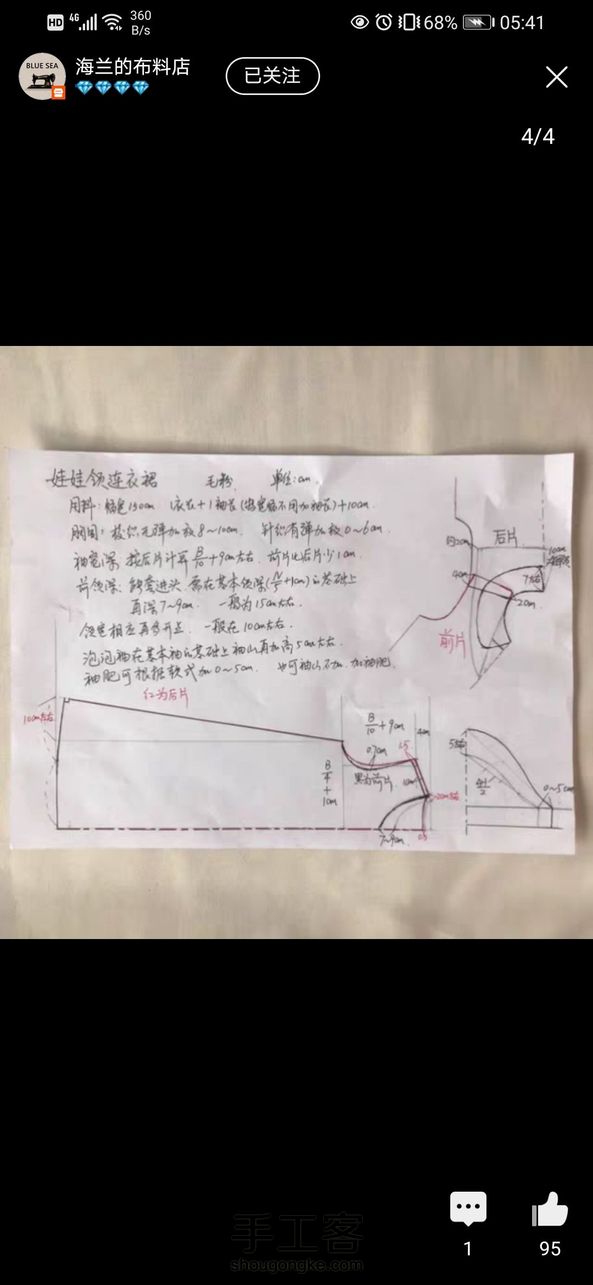 HD 4G 360 B/s 68% 05:41
BLUE SEA
海兰的布料店
已关注
4/4
娃娃领连衣裙 毛粉 单位:cm
用料:幅宽150cm 衣长+1袖长(幅宽幅不用加袖长)+10cm
胸围:梭织无弹加放8~10cm 针织有弹加放0~6cm
袖窿深:按后片计算B/10+9cm左右 前片比后片少1cm
前领深:能套进头 需在基本领深(N/5+1cm)的基础上
再深7~9cm 一般为15cm左右
领宽相应再多开点 一般在10cm左右
泡泡袖在基本袖的基础上袖山再加高5cm左右
袖肥可根据款式加0~5cm 也可袖山不加 加袖肥
红为后片
10cm左右
B/4+1cm
B/10+9cm
4cm
0.7cm
1.5
黑为前片
7~9cm
0.5
后片
前片
4cm
7左右
2cm
10cm
5左右
0~5cm
1
95
手工客
shougongke.com